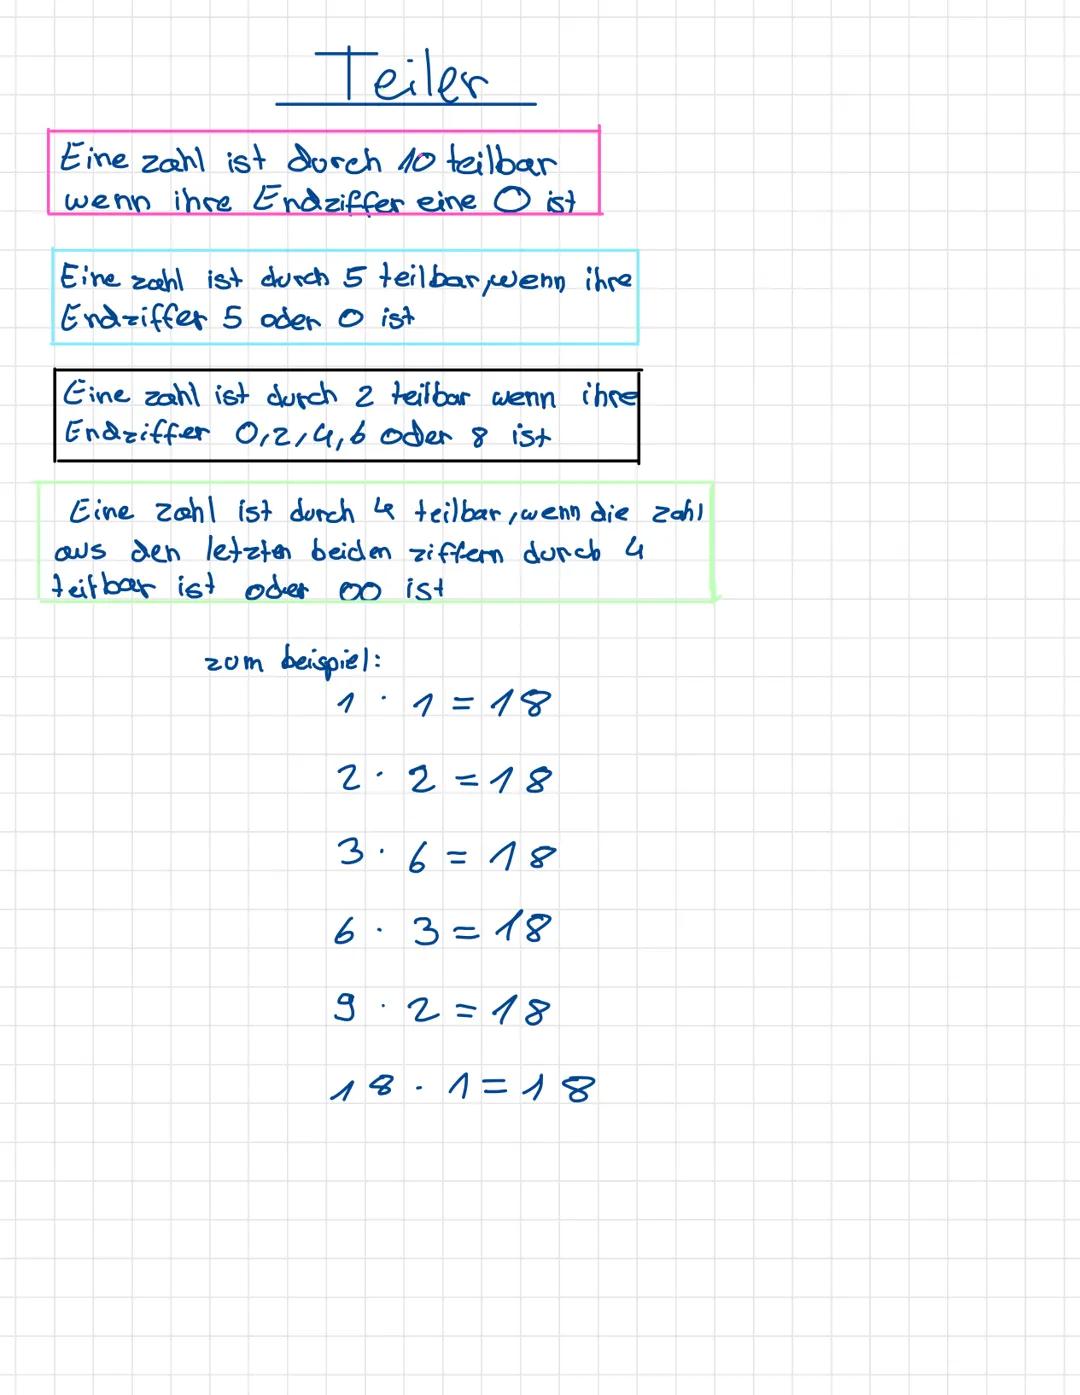 Teiler
Eine zahl ist durch 10 teilbar
wenn ihre Endziffer eine 0 ist
Eine zahl ist durch 5 teilbar, wenn ihre
Endziffer 5 oder 0 ist
Eine zahl ist durch 2 teilbar wenn ihre
Endziffer 0,2,4,6 oder 8 ist
Eine zahl ist durch 4 teilbar, wenn die zahl
aus den letzten beiden ziffern durch 4
teilbar ist oder 00 ist
zum beispiel:
1 · 1 = 18
2 · 2 = 18
3 · 6 = 18
6 · 3 = 18
9 · 2 = 18
18 · 1 = 18